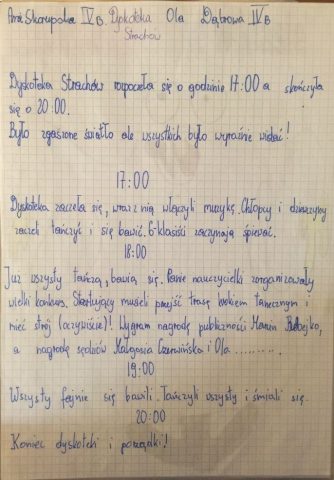 Ania Skorupska IV B. Dyskoteka Ola Dąbrowa IV B
Strachów
Dyskoteka Strachów rozpoczeła się o godzinie 17:00 a skończyła
się o 20:00.
Było zgaszone światło ale wszystkich było wyraźnie widać!
17:00
Dyskoteka zaczeła się, wraz z nią włączyli muzykę. Chłopcy i dziewczyny
zaczeli tańczyć i się bawić. 6-klasiści zaczynają śpiewać.
18:00
Już wszysty tańczą, bawią się. Panie nauczycielki zorganizowały
wielki konkurs. Startujący museli przejść trasę krokiem tanecznym i
mieć strój (oczywiście)! Wygram nagrodę publiczności
a nagrodę sędziów Małgosia Czerwińska i Ola ..........
19:00
Wszysty fajnie się bawili. Tańczyli wszysty i śmiali się.
20:00
Koniec dyskoteki i porządki!